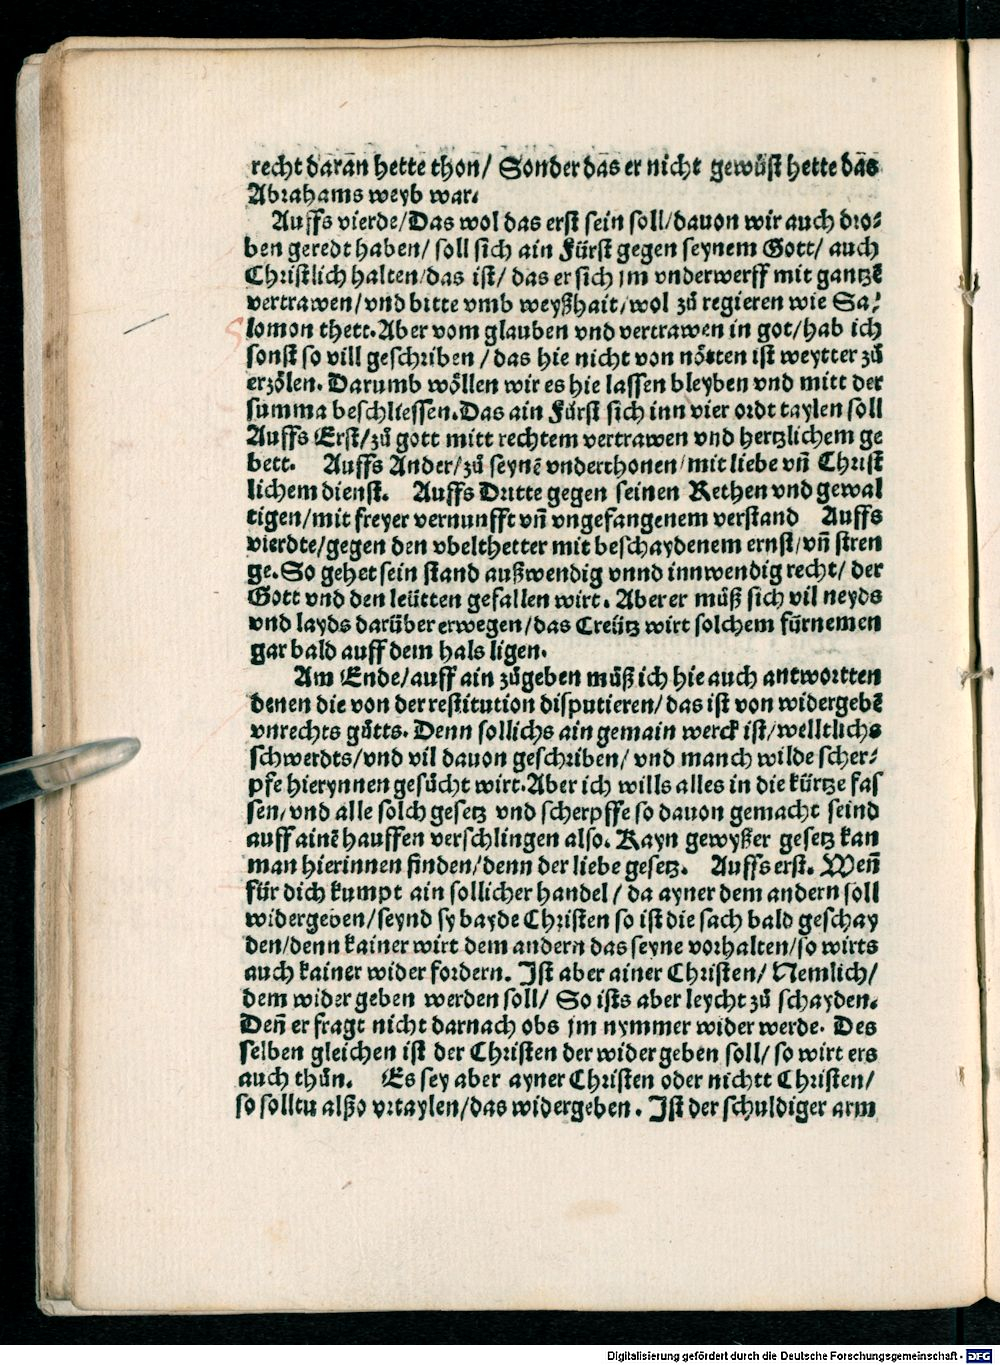 recht daran hette thon/ Sonder das er nicht gewüst hette das
Abrahams weyb war.
Auffs vierde/Das wol das erst sein soll/dauon wir auch dro-
ben geredt haben/ soll sich ain Fürst gegen seynem Gott/ auch
Christlich halten/das ist/ das er sich jm vnderwerff mit gantzē
vertrawen/vnd bitte vmb weyßhait/wol zů regieren wie Sa-
lomon thett. Aber vom glauben vnd vertrawen in got/hab ich
sonst so vill geschriben /das hie nicht von nötten ist weytter zů
erzölen. Darumb wöllen wir es hie lassen bleyben vnd mitt der
summa beschliessen. Das ain Fürst sich inn vier ordt taylen soll
Auffs Erst/zů gott mitt rechtem vertrawen vnd hertzlichem ge
bett. Auffs Ander/zů seynē vnderthonen/mit liebe vñ Christ
lichem dienst. Auffs Dritte gegen seinen Rethen vnd gewal
tigen/mit freyer vernunfft vñ vngefangenem verstand Auffs
vierdte/gegen den vbelthetter mit beschaydenem ernst/vñ stren
ge. So gehet sein stand außwendig vnnd innwendig recht/ der
Gott vnd den leütten gefallen wirt. Aber er můß sich vil neyds
vnd layds darüber erwegen/das Creütz wirt solchem fürnemen
gar bald auff dem hals ligen.
Am Ende/auff ain zůgeben můß ich hie auch antwortten
denen die von der restitution disputieren/das ist von widergebē
vnrechts gůtts. Denn sollichs ain gemain werck ist/welltlichs
schwerdts/vnd vil dauon geschriben/ vnd manch wilde scher-
pfe hierynnen gesůcht wirt. Aber ich wills alles in die kürtze fas
sen/vnd alle solch gesetz vnd scherpffe so dauon gemacht seind
auff ainē hauffen verschlingen also. Kayn gewyßer gesetz kan
man hierinnen finden/denn der liebe gesetz. Auffs erst. Weñ
für dich kumpt ain sollicher handel/ da ayner dem andern soll
widergeben/seynd sy bayde Christen so ist die sach bald geschay
den/denn kainer wirt dem andern das seyne vorhalten/so wirts
auch kainer wider fordern. Jst aber ainer Christen/ Nemlich/
dem wider geben werden soll/ So ists aber leycht zů schayden.
Deñ er fragt nicht darnach obs jm nymmer wider werde. Des
selben gleichen ist der Christen der wider geben soll/ so wirt ers
auch thůn. Es sey aber ayner Christen oder nichtt Christen/
so solltu alßo vrtaylen/das widergeben. Jst der schuldiger arm
Digitalisierung gefördert durch die Deutsche Forschungsgemeinschaft - DFG